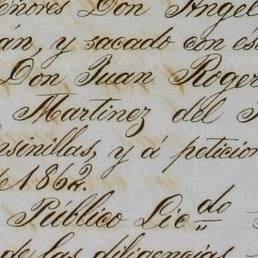 eñores Don Angel
án, y sacado con es
Don Juan Roger
Martinez del
nsinillas, y á peticion
de 1862.
Público Lic.do
de las diligencias